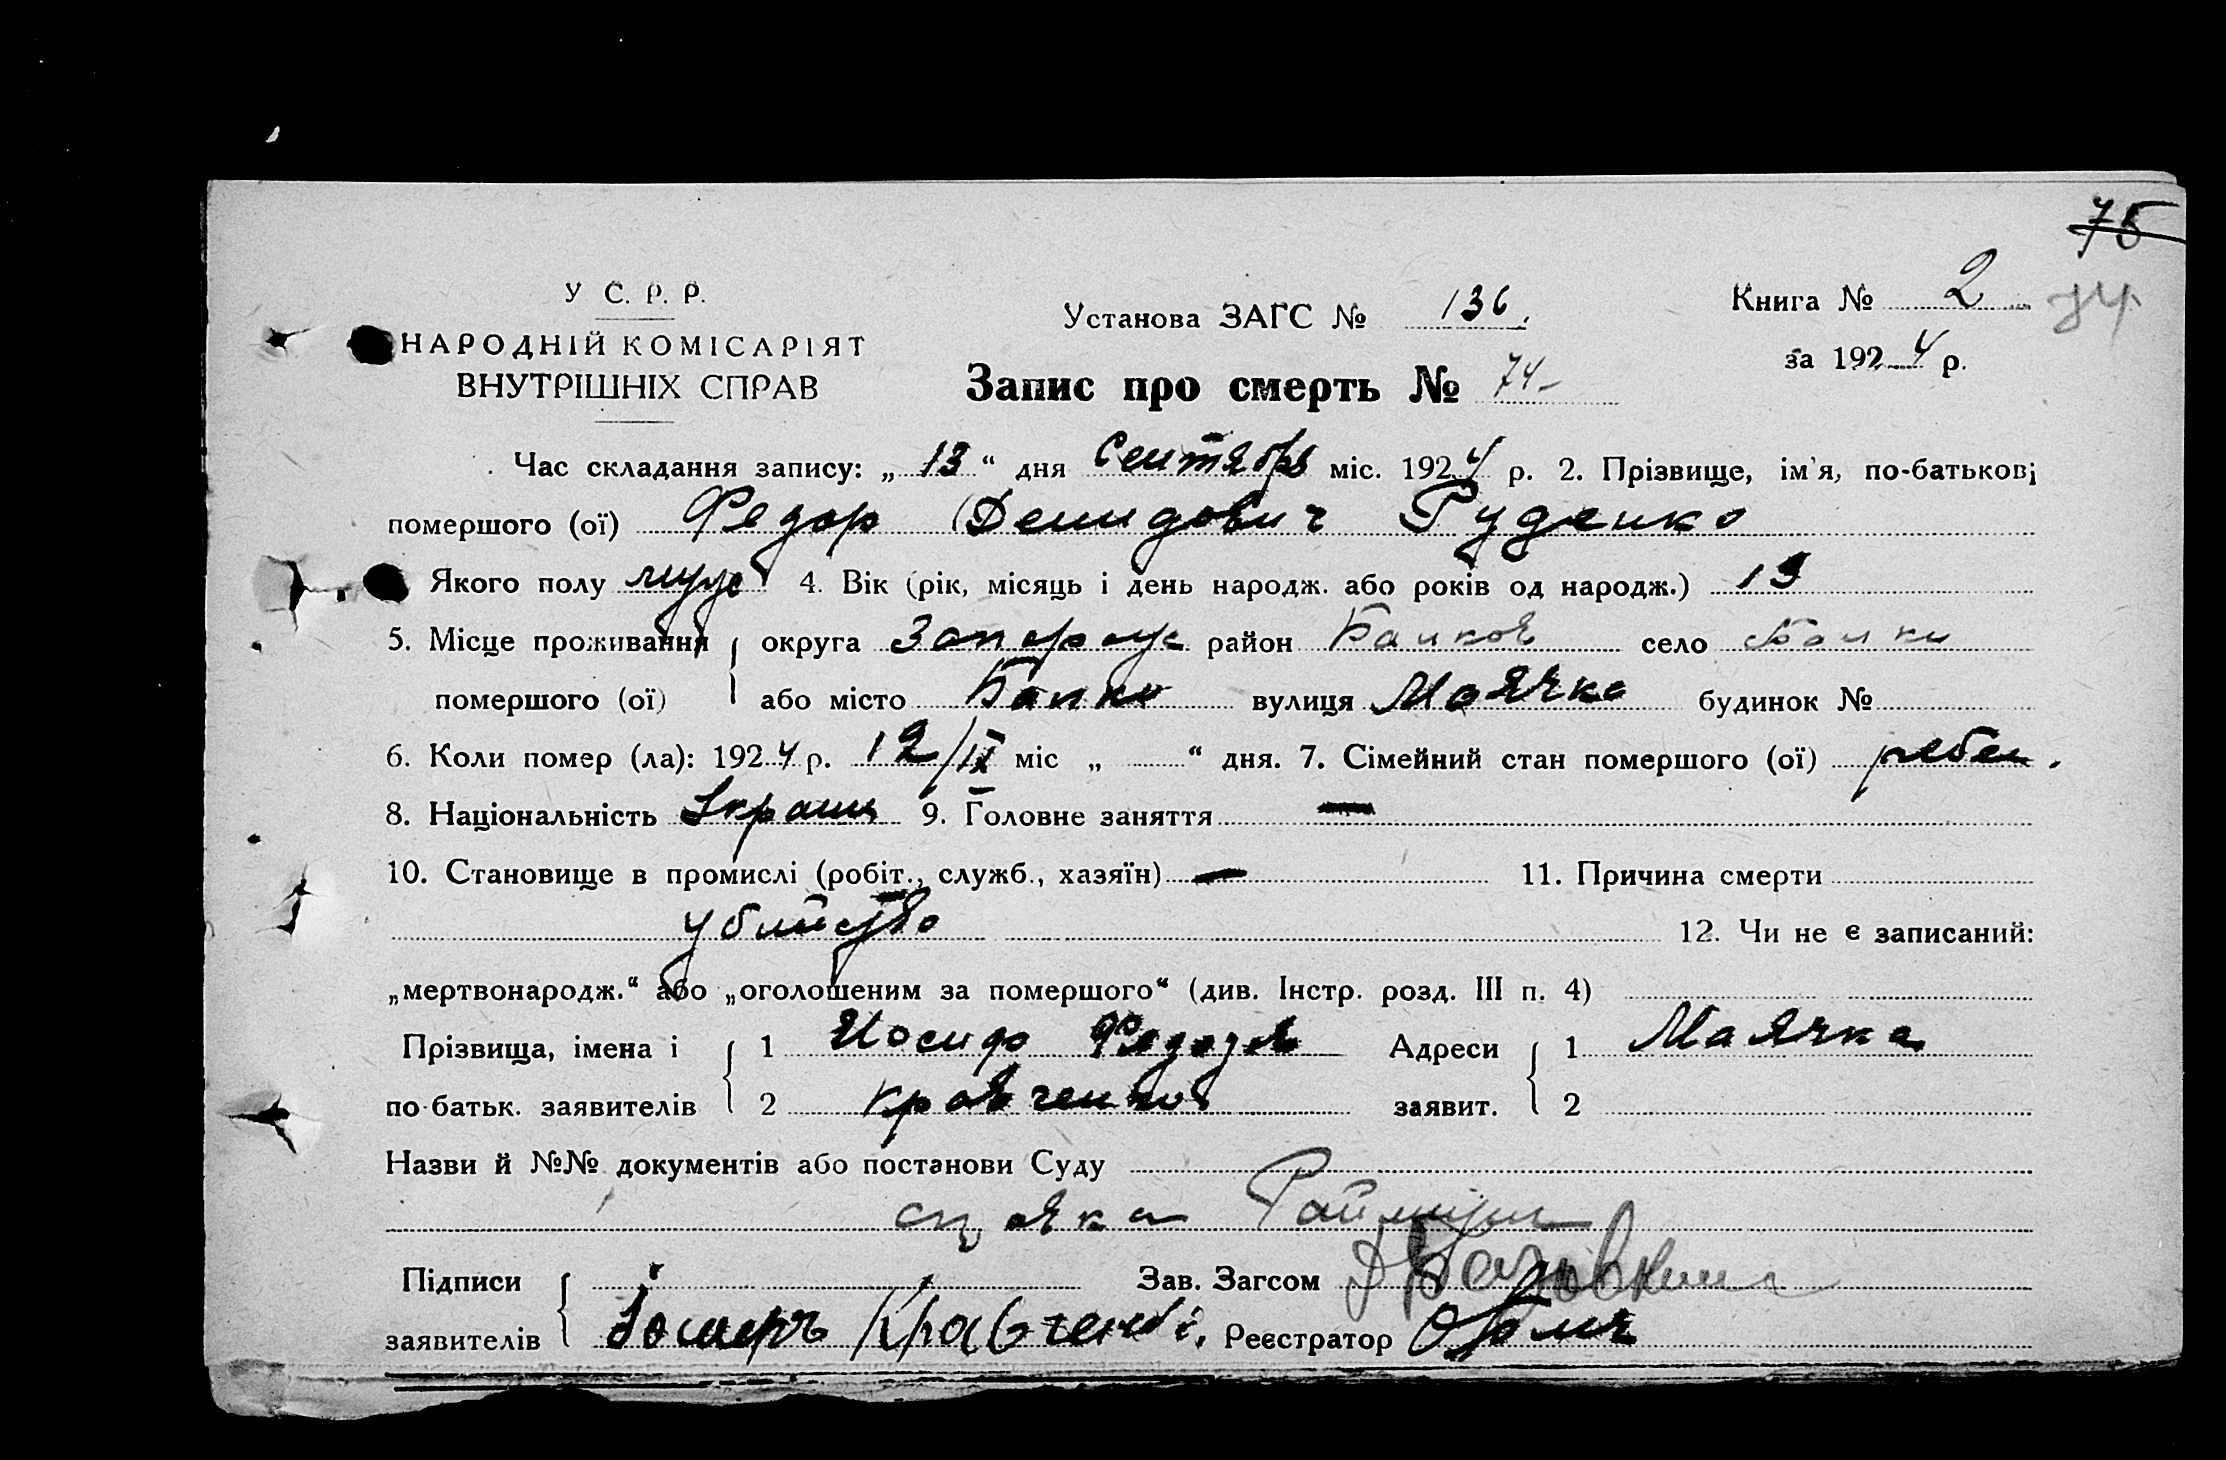 75
У С. Р. Р.
НАРОДНІЙ КОМІСАРІЯТ
ВНУТРІШНІХ СПРАВ
Установа ЗАГС № 136.
Книга № 2 74
за 1924 р.
Запис про смерть № 74
Час складання запису: „13“ дня Сентября міс. 1924 р. 2. Прізвище, ім'я, по-батькові
помершого (ої) Федор Демидович Руденко
Якого полу муж 4. Вік (рік, місяць і день народж. або років од народж.) 13
5. Місце проживання округа Запорож район Балков село Балки
помершого (ої) або місто Балки вулиця Маячка будинок №
6. Коли помер (ла): 1924 р. 12/IX міс „ “ дня. 7. Сімейний стан помершого (ої) ребен.
8. Національність 9. Головне заняття —
10. Становище в промислі (робіт., служб., хазяїн) — 11. Причина смерти
убийство 12. Чи не є записаний:
„мертвонародж.“ або „оголошеним за помершого“ (див. Інстр. розд. III п. 4)
Прізвища, імена і 1 Иосиф Адреси 1 Маячка
по-батьк. заявителів 2 Кравченко заявит. 2
Назви й №№ документів або постанови Суду
Підписи Зав. Загсом
заявителів Кравченко Реєстратор